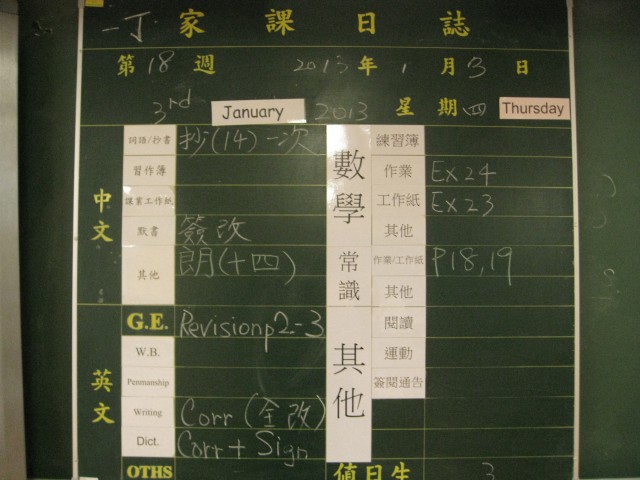 一丁 家課日誌
第 18 週 2013 年 1 月 3 日
3rd January 2013 星期四 Thursday
中文
詞語/抄書 抄(14)一次
習作簿
課業工作紙
默書 簽改
其他 朗(十四)
英文
G.E. Revision p2-3
W.B.
Penmanship
Writing Corr (全改)
Dict. Corr + Sign
OTHS
數學
練習簿
作業 Ex 24
工作紙 Ex 23
其他
常識
作業/工作紙 P18,19
其他
其他
閱讀
運動
簽閱通告
值日生 3